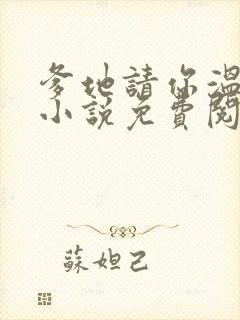 爹地請你溫
小說免費閱
蘇妲己